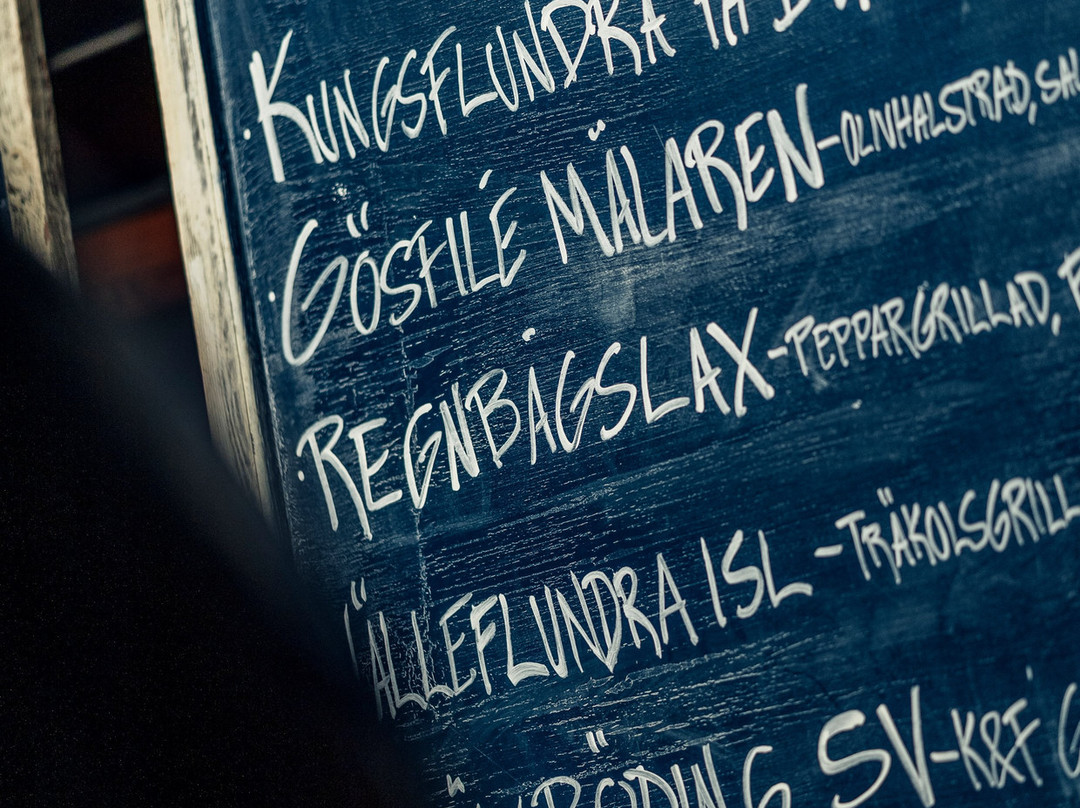 · KUNGSFLUNDRA
· GÖSFILÉ MÄLAREN - OLIVHALSTRAD,
· REGNBÅGSLAX - PEPPARGRILLAD,
ÄLLEFLUNDRA ISL - TRÄKOLSGRILL
RÖDING SV - K&F